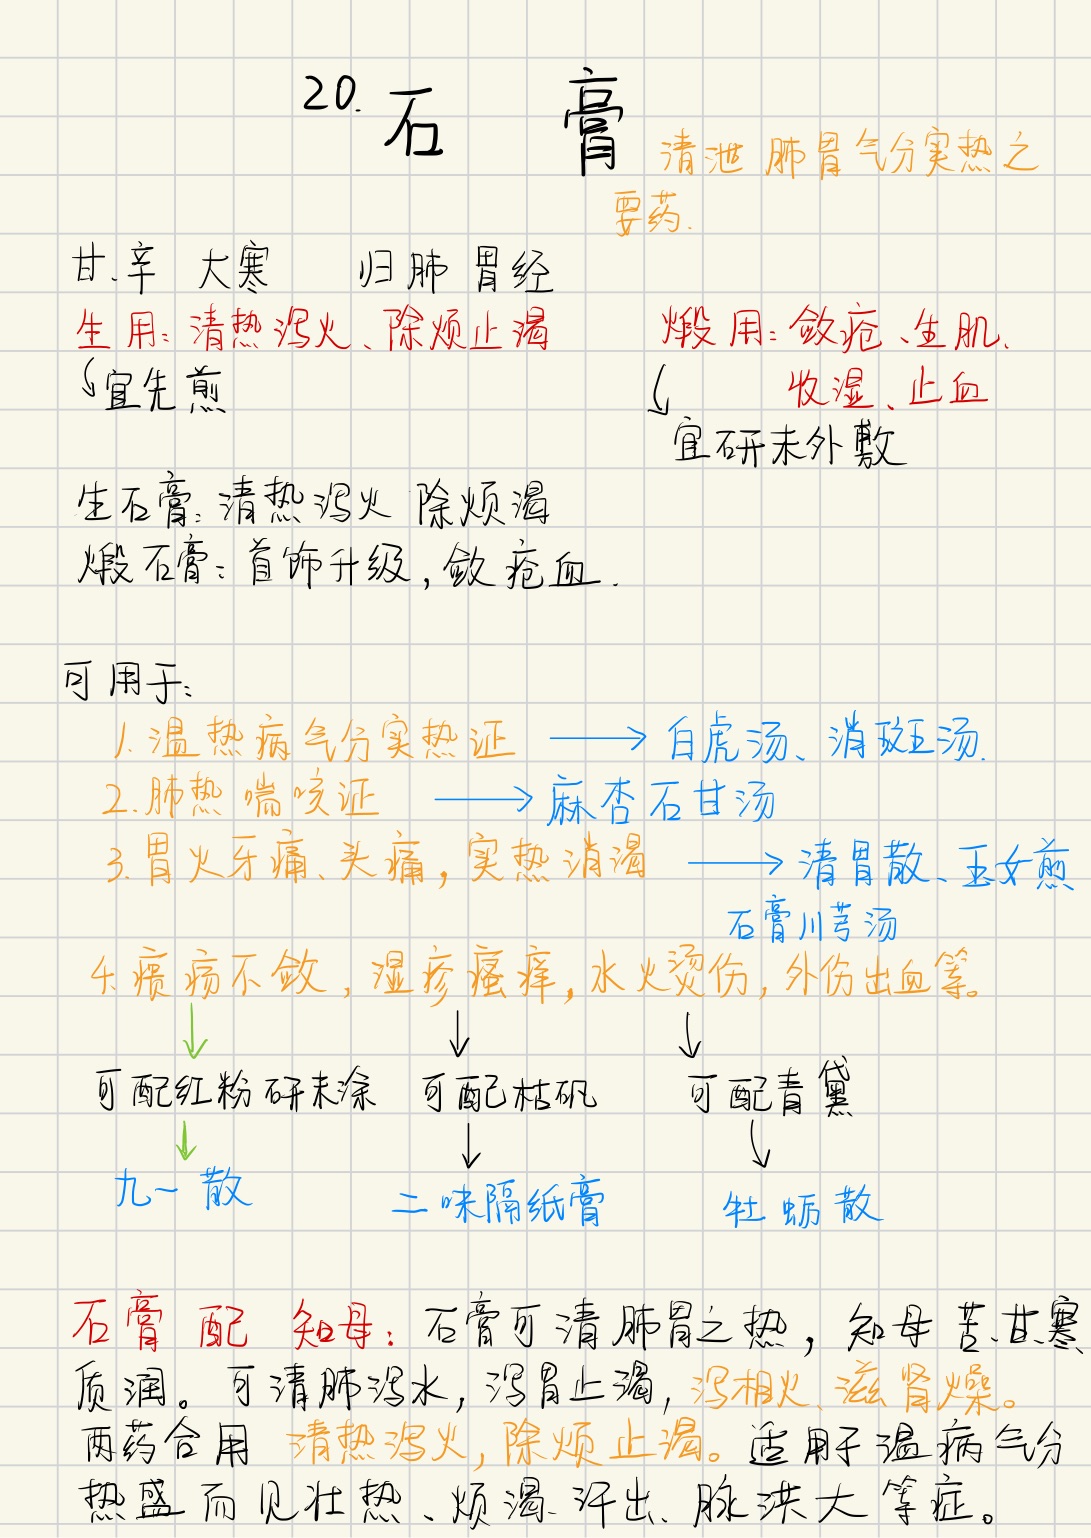 20. 石 膏
清泄肺胃气分实热之
要药.
甘、辛 大寒 归肺胃经
生用:清热泻火、除烦止渴 煅用:敛疮、生肌、
宜先煎 收湿、止血
宜研末外敷
生石膏:清热泻火 除烦渴
煅石膏:首饰升级,敛疮血.
可用于:
1.温热病气分实热证 → 白虎汤、消斑汤.
2.肺热喘咳证 → 麻杏石甘汤
3.胃火牙痛、头痛,实热消渴 → 清胃散、玉女煎
石膏川芎汤
4.疡不敛,湿疹瘙痒,水火烫伤,外伤出血等。
可配红粉研末涂 可配枯矾 可配青黛
九一散 二味隔纸膏 牡蛎散
石膏 配 知母:石膏可清肺胃之热,知母苦、甘、寒、
质润。可清肺泻水,泻胃止渴,泻相火、滋肾燥。
两药合用 清热泻火,除烦止渴。适用于温病气分
热盛而见壮热、烦渴、汗出、脉洪大等症。